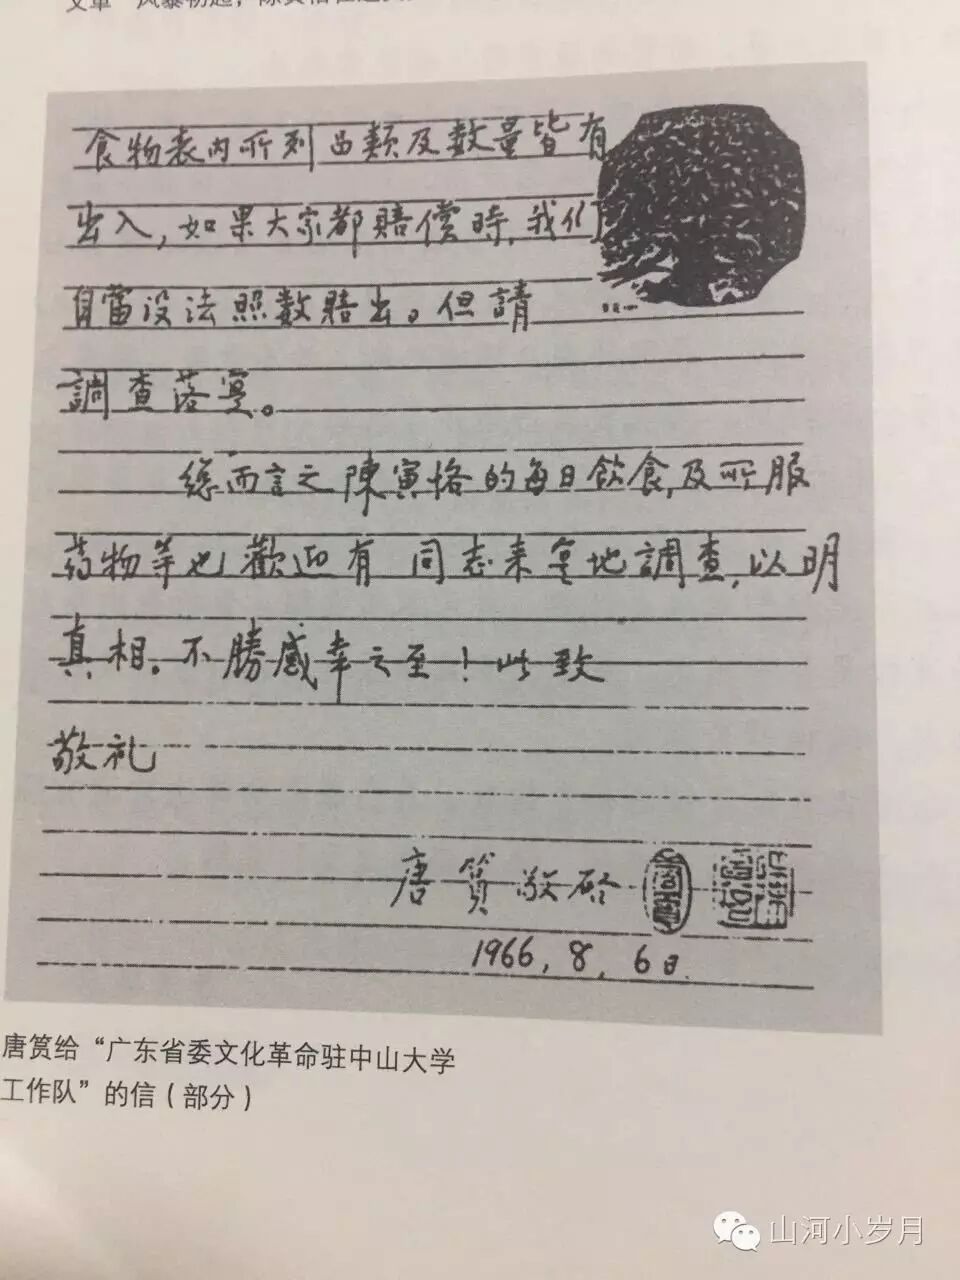 食物表内所列品類及数量皆有
出入，如果大家都賠償時，我们
自當设法照数賠出。但請
調查落实。
總而言之陳寅恪的每日飲食，及所服
药物等也歡迎有 同志来实地調查，以明
真相。不勝感幸之至！此致
敬礼
唐篔敬啓
1966，8，6日
唐筼给“广东省委文化革命驻中山大学
工作队”的信（部分）
山河小岁月